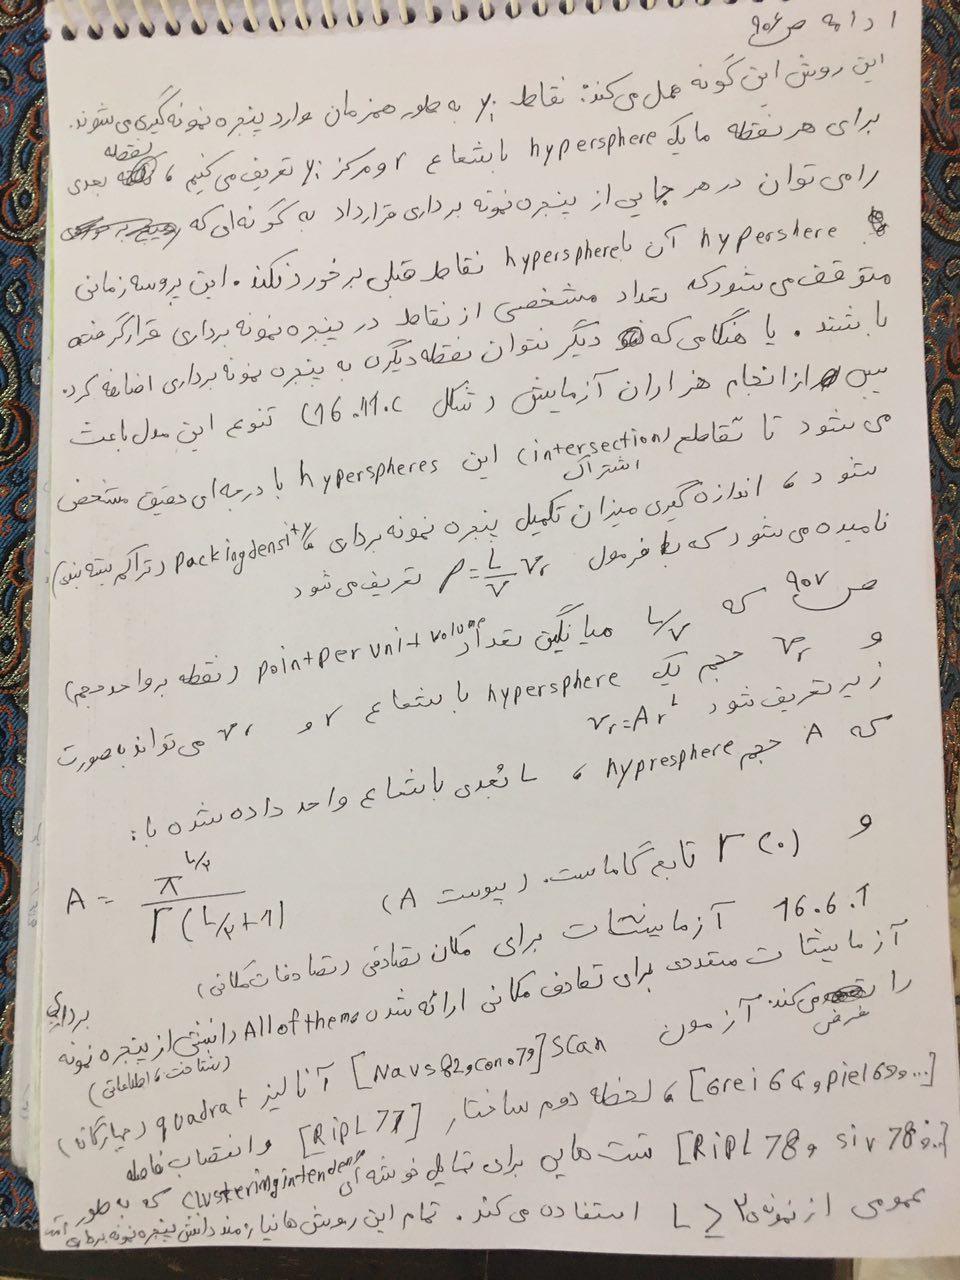 ادامه ص ۹۰۶
این روش این گونه عمل می‌کند: نقاط yi به طور همزمان وارد پنجره نمونه گیری می‌شوند.
برای هر نقطه ما یک hypersphere با شعاع r و مرکز yi تعریف می‌کنیم، نقطه بعدی
را می‌توان در هر جایی از پنجره نمونه برداری قرار داد به گونه‌ای که
hypershere آن با hypersphere نقاط قبلی برخورد نکند. این پروسه زمانی
متوقف می‌شود که تعداد مشخصی از نقاط در پنجره نمونه برداری قرار گرفته
باشند. یا هنگامی که دیگر نتوان نقطه دیگری به پنجره نمونه برداری اضافه کرد.
پس از انجام هزاران آزمایش (شکل 16.11.c) تنوع این مدل باعث
می‌شود تا تقاطع (intersection) اشتراک این hyperspheres با درجه‌ای دقیق مشخص
شود، اندازه گیری میزان تکمیل پنجره نمونه برداری packing density (تراکم بسته بندی)
نامیده می‌شود که با فرمول ρ = L/V Vr تعریف می‌شود
ص ۹۰۷ که L/V میانگین تعداد point per unit volume (نقطه بر واحد حجم)
و Vr حجم یک hypersphere با شعاع r و Vr می‌تواند به صورت
زیر تعریف شود Vr = Ar^L
که A حجم hypresphere، L بُعدی با شعاع واحد داده شده با:
A = π^(L/2) / Γ(L/2 + 1)
و Γ(.) تابع گاماست. (پیوست A)
16.6.1 آزمایشات برای مکان تصادفی (تصادفات مکانی)
آزمایشات متعددی برای تصادف مکانی ارائه شده All of theme دانشی از پنجره نمونه برداری
(شناخت، اطلاعاتی) را فرض می‌کند. آزمون Scan [Naus 82, cono 79] آنالیز quadrat (چهارگانه)
[Grei 64, piel 69, ...]، لحظه دوم ساختار [RipL 77] و انتصاب فاصله
[RipL 78, siv 78, ...] تست هایی برای تمایل خوشه‌ای clustering intendense که به طور
عمومی از نمونه L ≥ 2 استفاده می‌کند. تمام این روش ها نیازمند دانش پنجره نمونه برداری است